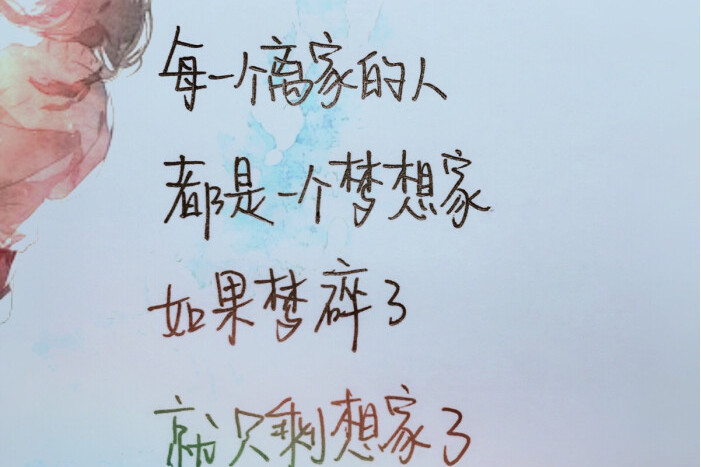 每一个离家的人
都是一个梦想家
如果梦碎了
就只剩想家了